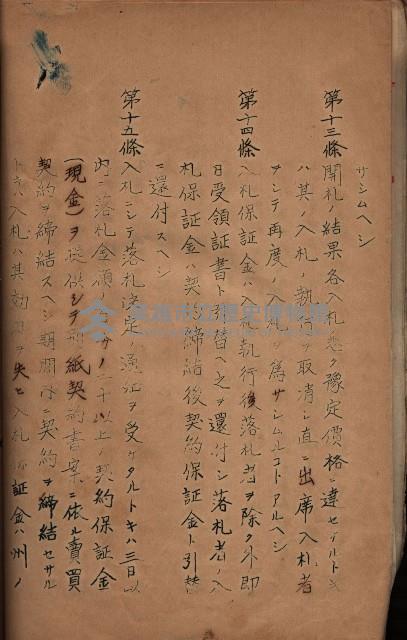 サシムヘシ
第十三條 開札ノ結果各入札悉ク豫定價格ニ達セザルトキ
ハ其ノ入札ノ執行ヲ取消シ直ニ出席入札者
ヲシテ再度ノ入札ヲ為サシムルコトアルヘシ
第十四條 入札保証金ハ入札執行後落札者ヲ除ク外即
日受領証書ト引替ヘ之ヲ還付シ落札者ノ入
札保証金ハ契約締結後契約保証金ト引替
ニ還付スヘシ
第十五條 入札ニシテ落札決定ノ通知ヲ受ケタルトキハ三日以
内ニ落札金額 分ノ二十以上ノ契約保証金
(現金)ヲ提供シテ別紙契約書案ニ依ル賣買
契約ヲ締結スヘシ期間内ニ契約ヲ締結セサル
トキハ入札ハ其効力ヲ失ヒ入札保証金ハ州ノ
高雄市立歷史博物館